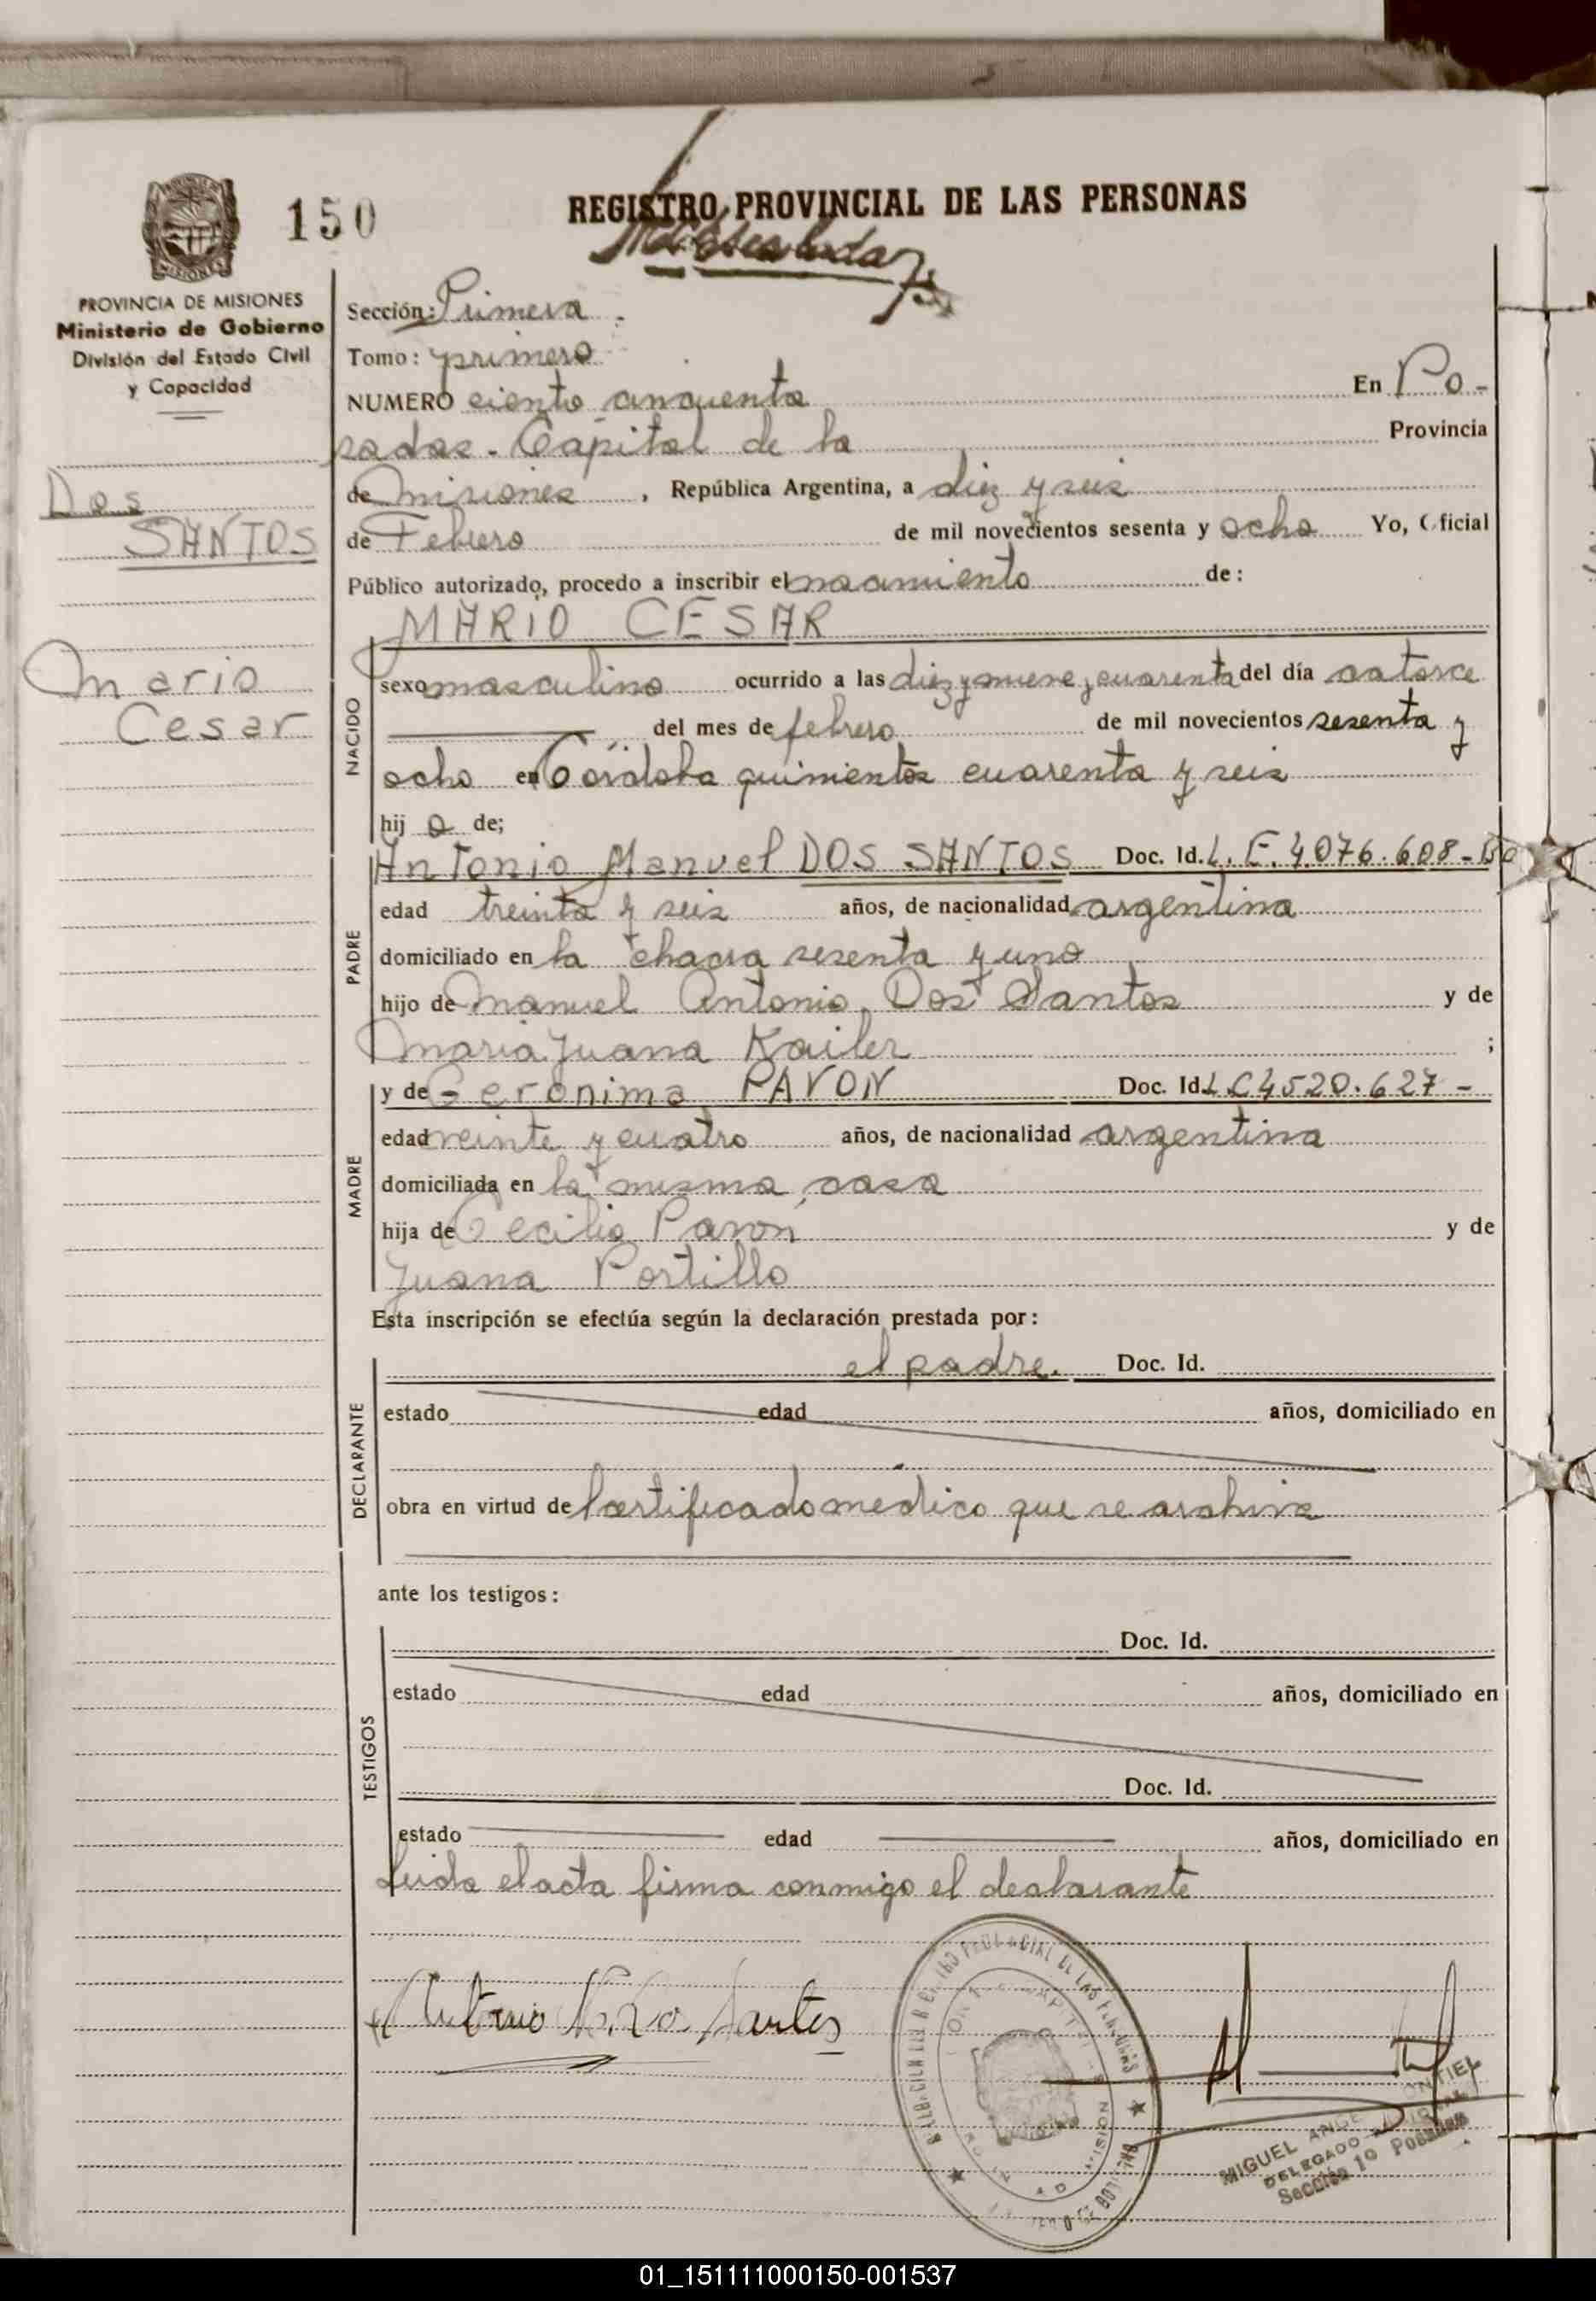 150
REGISTRO PROVINCIAL DE LAS PERSONAS
PROVINCIA DE MISIONES
Ministerio de Gobierno
División del Estado Civil
y Capacidad
Dos
SANTOS
Mario
Cesar
Sección: Primera
Tomo: primero
NUMERO ciento cincuenta En Po-
sadas - Capital de la Provincia
de Misiones, República Argentina, a diez y seis
de Febrero de mil novecientos sesenta y ocho Yo, Oficial
Público autorizado, procedo a inscribir el nacimiento de:
MARIO CESAR
NACIDO
sexo masculino ocurrido a las diez y nueve y cuarenta del día catorce
del mes de febrero de mil novecientos sesenta y
ocho en Córdoba quinientos cuarenta y seis
hijo de;
PADRE
Antonio Manuel DOS SANTOS Doc. Id. L. E. 4.076.608-
edad treinta y seis años, de nacionalidad argentina
domiciliado en la chacra sesenta y uno
hijo de Manuel Antonio Dos Santos y de
Maria Juana Kailer ;
MADRE
y de Geronima PAVON Doc. Id. L.C 4520.627-
edad veinte y cuatro años, de nacionalidad argentina
domiciliada en la misma casa
hija de Cecilio Pavón y de
Juana Portillo
Esta inscripción se efectúa según la declaración prestada por:
DECLARANTE
el padre. Doc. Id.
estado edad años, domiciliado en
obra en virtud de certificado medico que se archiva
ante los testigos:
TESTIGOS
Doc. Id.
estado edad años, domiciliado en
Doc. Id.
estado edad años, domiciliado en
Leida el acta firma conmigo el declarante
Antonio M. Do Santos
MIGUEL ANGEL
DELEGADO
Sección 1º Posadas
01_151111000150-001537